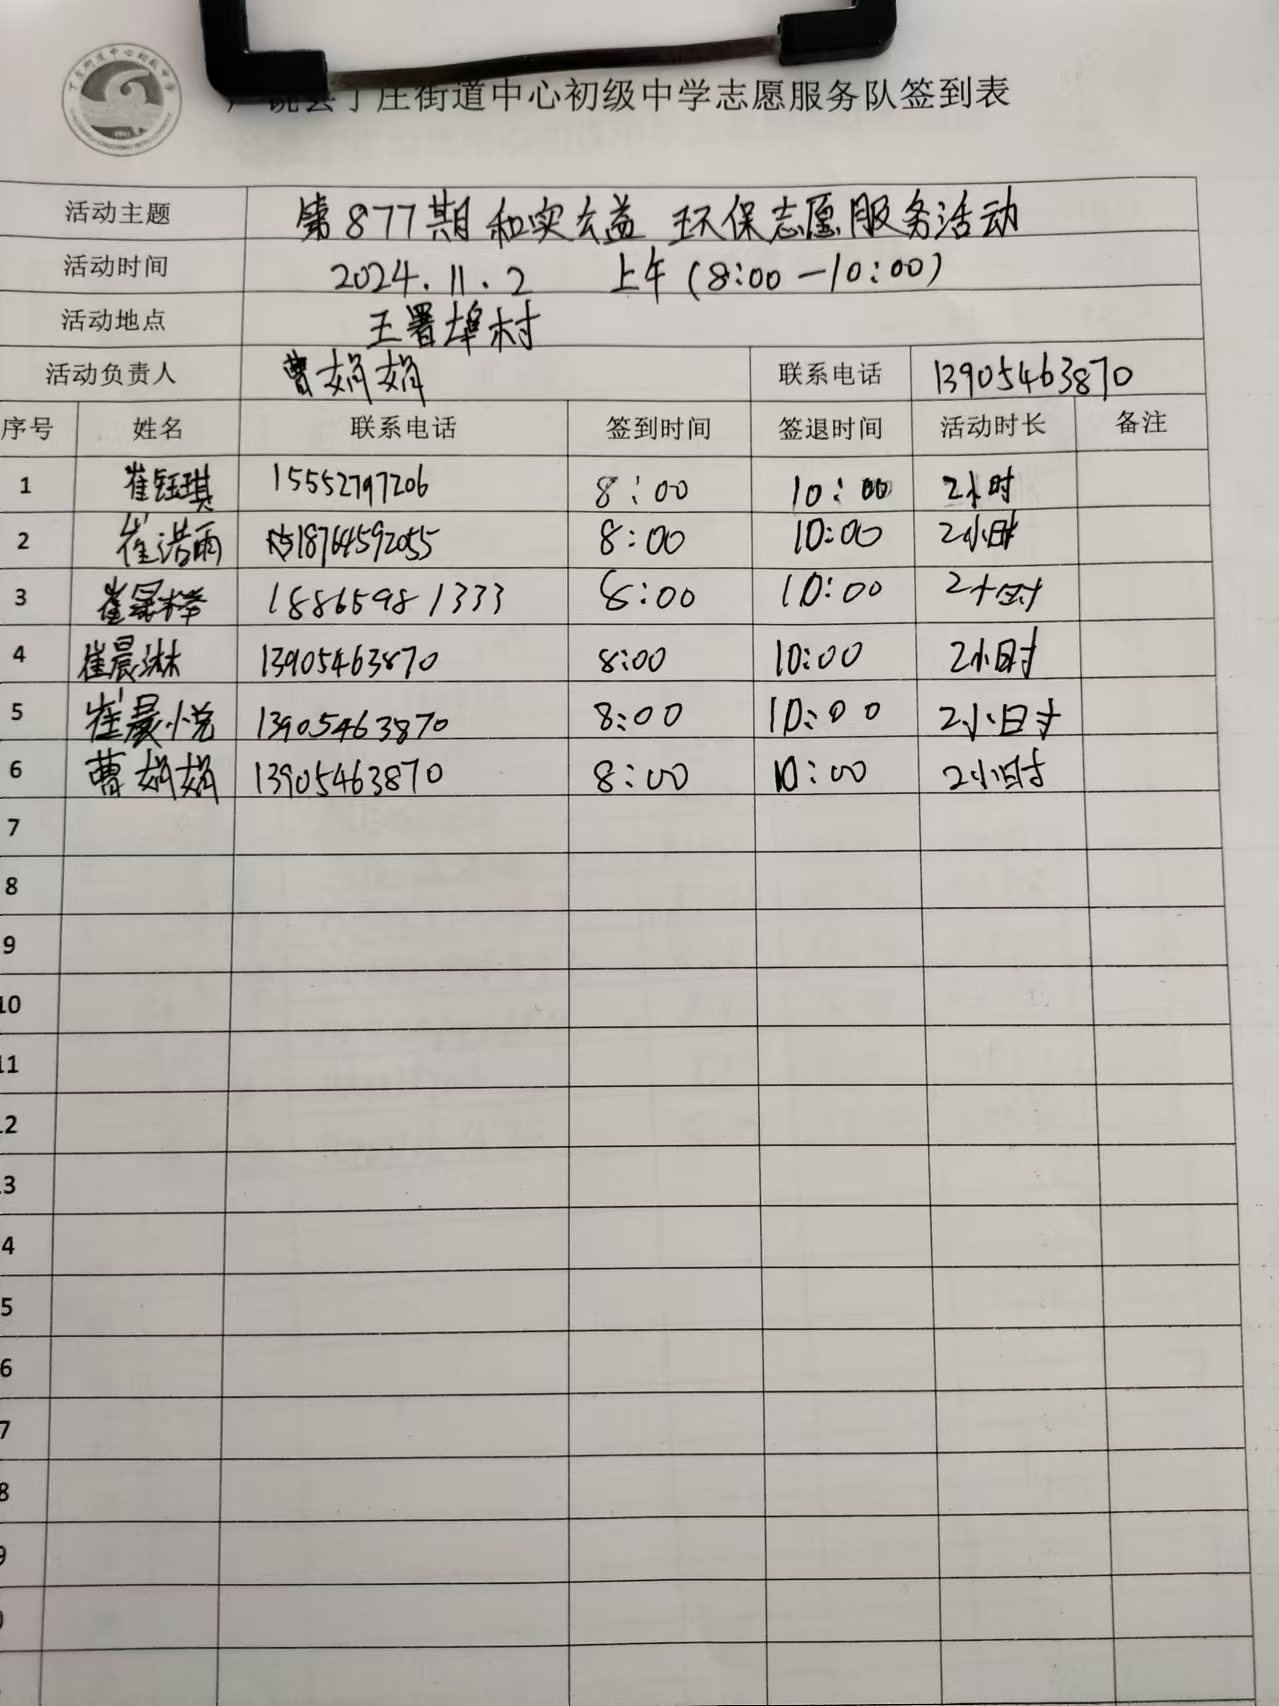 丁庄街道中心初级中学志愿服务队签到表
活动主题 第877期和实公益 环保志愿服务活动
活动时间 2024.11.2 上午(8:00-10:00)
活动地点 王署埠村
活动负责人 曹娟娟 联系电话 13905463870
序号 姓名 联系电话 签到时间 签退时间 活动时长 备注
1 崔钰琪 15552797206 8:00 10:00 2小时
2 崔浩雨 18764592055 8:00 10:00 2小时
3 崔 18865981333 8:00 10:00 2小时
4 崔晨淋 13905463870 8:00 10:00 2小时
5 崔晨悦 13905463870 8:00 10:00 2小时
6 曹娟娟 13905463870 8:00 10:00 2小时
7
8
9
10
11
2
3
4
5
6
7
8
9